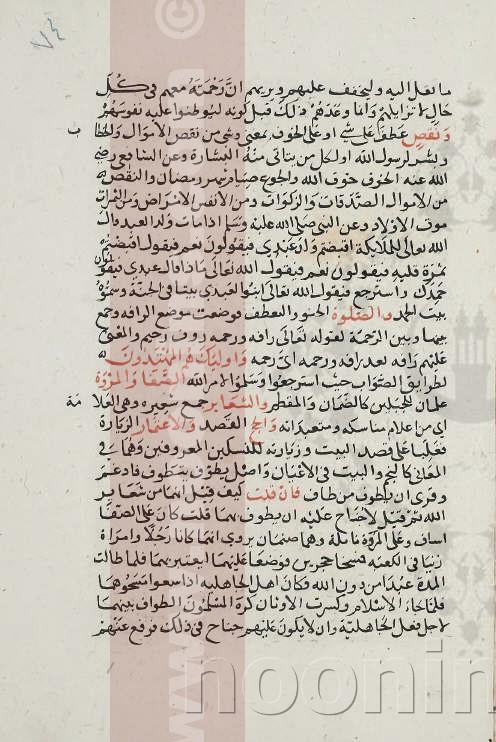 ما نقل اليه وليخفف عليهم ويريهم ان رحمته معهم في كل
حال لا تزايلهم وانما وعدهم ذلك قبل كونه ليوطنوا عليه نفوسهم
ونقص عطف على شي او على الخوف بمعنى وشي من نقص الاموال والخطاب
وبشر لرسول الله او لكل من يتاتى منه البشارة وعن الشافعي رضي
الله عنه الخوف خوف الله والجوع صيام شهر رمضان والنقص
من الاموال الصدقات والزكوات ومن الانفس الامراض ومن الثمرات
موت الاولاد وعن النبي صلى الله عليه وسلم اذا مات ولد العبد قال
الله تعالى للملائكة اقبضتم ولد عبدي فيقولون نعم فيقول اقبضتم
ثمرة قلبه فيقولون نعم فيقول الله تعالى ماذا قال عبدي فيقولون
حمدك واسترجع فيقول الله تعالى ابنوا لعبدي بيتا في الجنة وسموه
بيت الحمد والصلوة الحنو والتعطف فوضعت موضع الرافه وجمع
بينها وبين الرحمة لقوله تعالى رافه ورحمه روف رحيم والمعنى
عليهم رافه بعد رافه ورحمه اي رحمه واوليك هم المهتدون
لطريق الصواب حيث استرجعوا وسلموا لامر الله الصفا والمروة
علمان للجبلين كالصمان والمقطم والشعاير جمع شعيره وهي العلامة
اي من اعلام مناسكه ومتعبداته والحج القصد والاعتمار الزيارة
فغلبا على قصد البيت وزيارته للنسكين المعروفين وهما في
المعاني كالنجم والبيت في الاعيان واصل يطوف يتطوف فادغم
وقرى ان يطوف من طاف فان قلت كيف قيل انهما من شعاير
الله ثم قيل لا جناح عليه ان يطوف بهما قلت كان على الصفا
اساف وعلى المروة نائلة وهما صنمان يروى انهما كانا رجلا وامراة
زنيا في الكعبه فمسخا حجرين فوضعا عليهما ليعتبر بهما فلما طالت
المدة عبدا من دون الله فكان اهل الجاهلية اذا سعوا مسحوهما
فلما جاء الاسلام وكسرت الاوثان كره المسلمون الطواف بينهما
لاجل فعل الجاهلية وان لا يكون عليهم جناح في ذلك فرفع عنهم
noonin